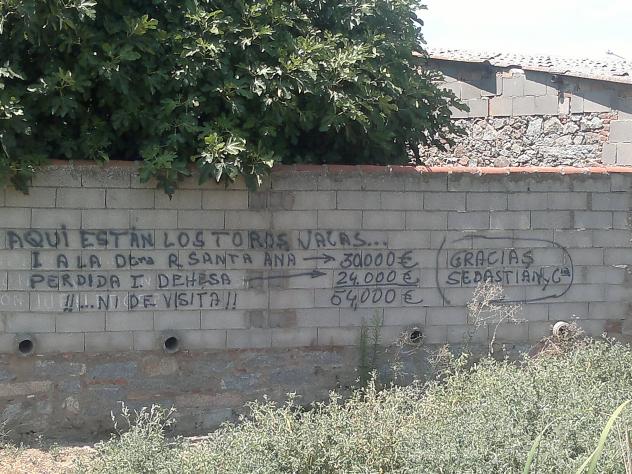 AQUÍ ESTÁN LOS TOROS VACAS...
I A LA Dtma R. SANTA ANA → 30.000 €
PERDIDA I. DEHESA → 24.000 €
!!...NI DE VISITA!! 54000 €
GRACIAS
SEBASTIÁN y Cía